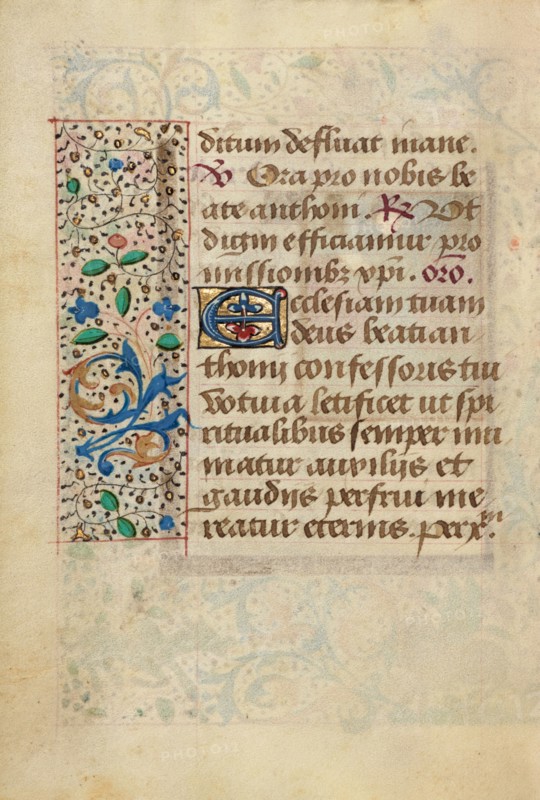 ditum defluat mane.
V Ora pro nobis be
ate anthoni. R Ut
digni efficiamur pro
missionibz xpi. oro.
Ecclesiam tuam
deus beati an
thonij confessoris tui
votiva letificet ut spi
ritualibus semper mu
niatur auxilijs et
gaudijs perfrui me
reatur eternis. per x̄.
PHOTO12
PHOTO12
PHOTO12